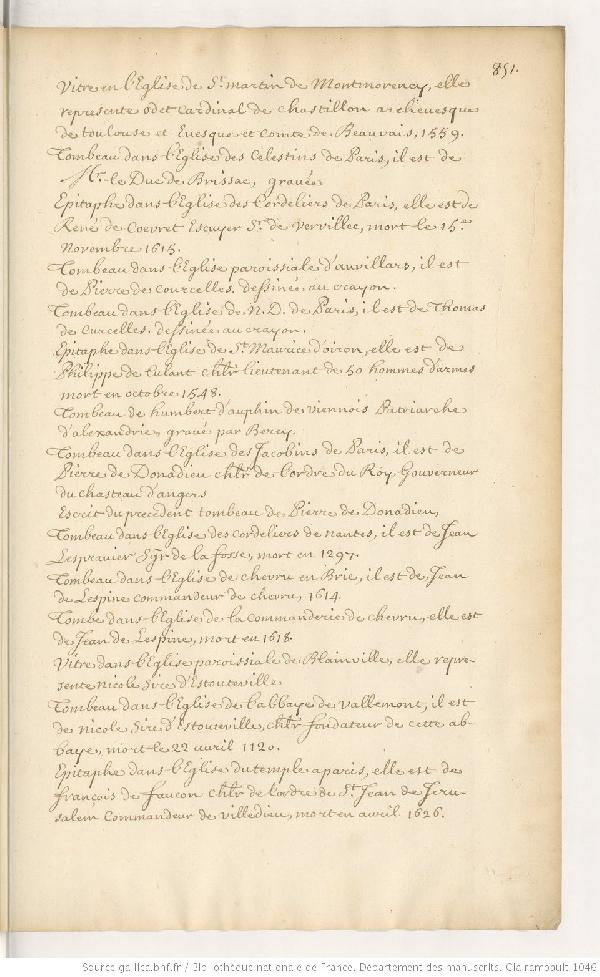 851.
Vitre en l'Eglise de St. martin de Montmorency, elle
represente odet cardinal de chastillon archeuesque
de toulouse et Euesque et comte de Beauvais, 1559.
Tombeau dans l'Eglise des Celestins de Paris, il est de
Mr. le Duc de Brissac, gravée
Epitaphe dans l'Eglise des Cordeliers de Paris, elle est de
René de Coevret Escuyer Sr. de Vervillee, mort le 15me
Novembre 1615.
Tombeau dans l'Eglise paroissiale d'auvillars, il est
de Pierre de courcelles. dessinée au crayon.
Tombeau dans l'Eglise de N. D. de Paris, il est de Thomas
de curcelles. dessinée au crayon.
Epitaphe dans l'Eglise de St. Maurice d'oiron, elle est de
Philippe de culant chlr lieutenant de 50 hommes d'armes
mort en octobre 1548.
Tombeau de humbert d'auphin de viennois Patriarche
d'alexandrie, gravé par Berey
Tombeau dans l'Eglise des Jacobins de Paris, il est de
Pierre de Donadieu chlr de l'ordre du Roy Gouverneur
du chasteau d'angers
Escrit du precedent tombeau de Pierre de Donadieu,
Tombeau dans l'Eglise des cordeliers de nantes, il est de Jean
Lespravier Sgr de la fosse, mort en 1297.
Tombeau dans l'Eglise de chevru en Brie, il est de Jean
de Lespine commandeur de chevru, 1614.
Tombe dans l'Eglise de la commanderie de chevru, elle est
de Jean de Lespine, mort en 1618.
Vitre dans l'Eglise paroissiale de Blainville, elle repre-
sente nicole sire d'Estouteville
Tombeau dans l'Eglise de l'abbaye de vallemont, il est
de nicole sire d'Estouteville, chlr fondateur de cette ab-
baye, mort le 22 avril 1120.
Epitaphe dans l'Eglise du temple a paris, elle est de
françois de faucon chlr de l'ordre de St. Jean de Jeru-
salem Commandeur de villedieu, mort en avril 1626.
Source gallica.bnf.fr / Bibliothèque nationale de France. Département des manuscrits. Clairambault 1046